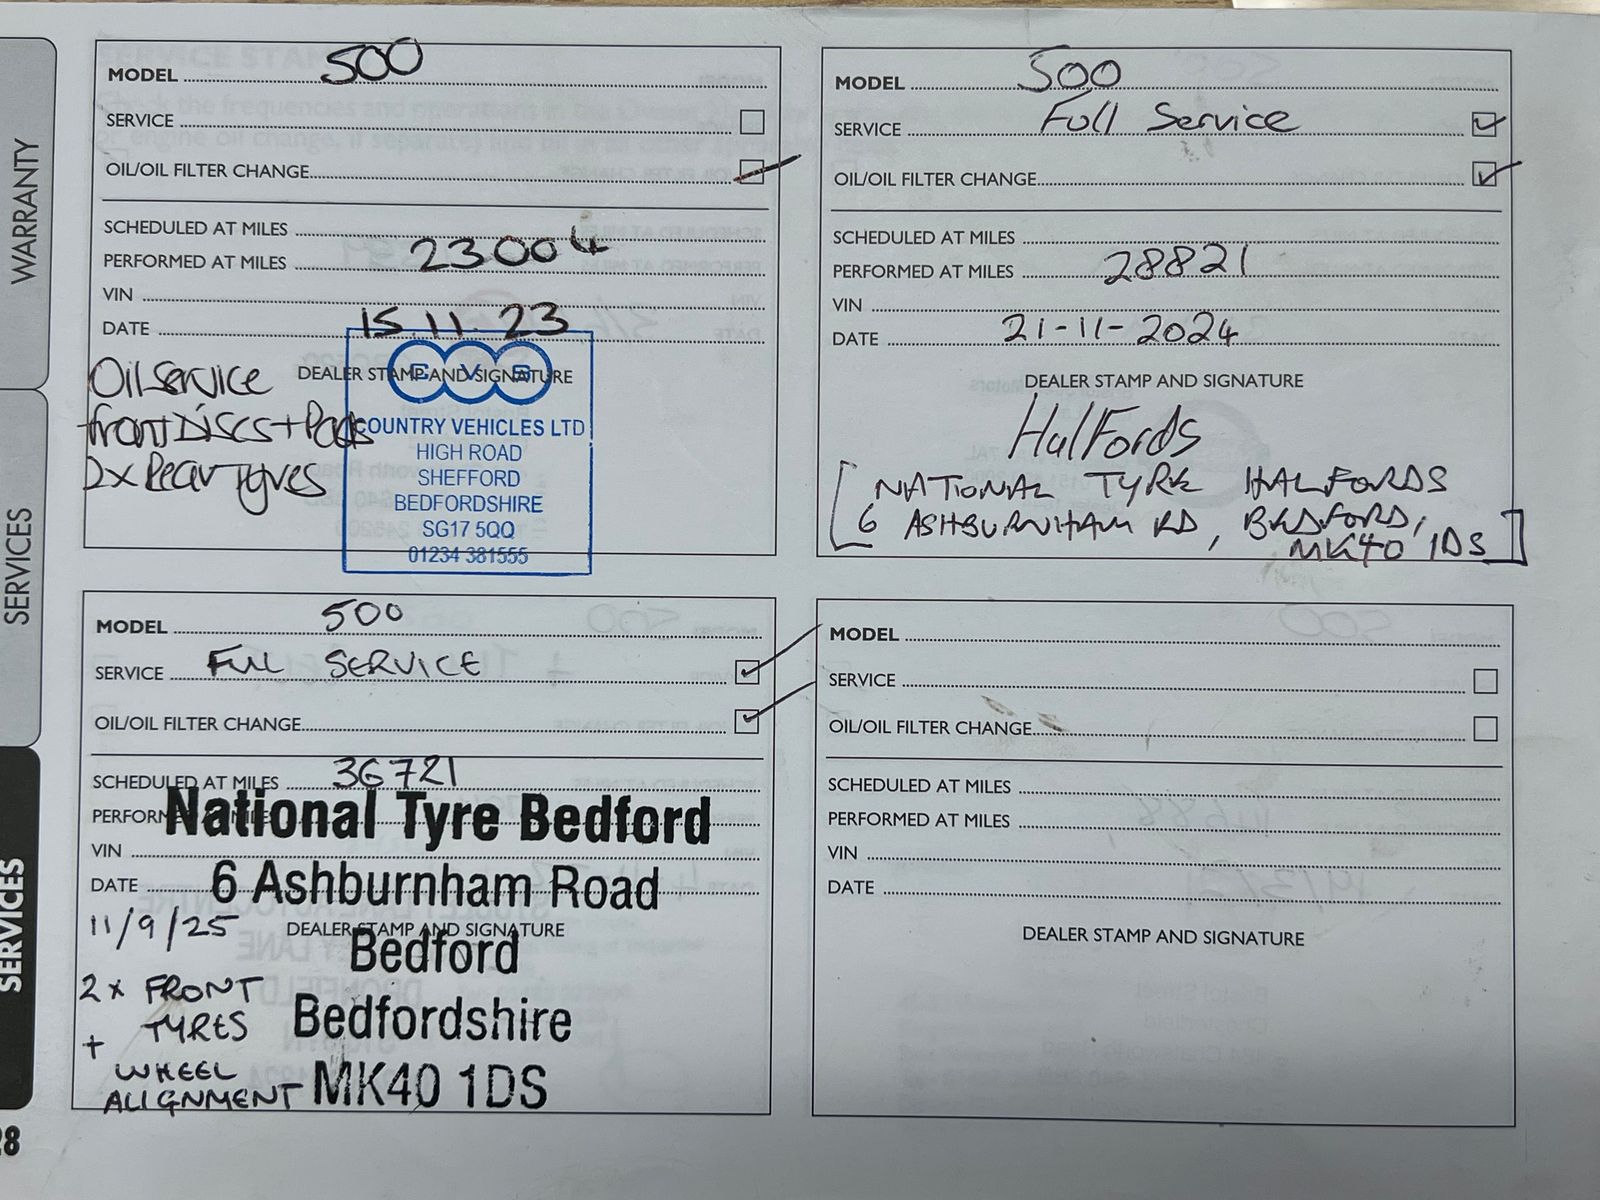 WARRANTY
SERVICES
SERVICES
28
MODEL 500
SERVICE
OIL/OIL FILTER CHANGE
SCHEDULED AT MILES
PERFORMED AT MILES 23004
VIN
DATE 15.11.23
DEALER STAMP AND SIGNATURE
Oil service
front Discs + Pads
2x Rear Tyres
CVS
COUNTRY VEHICLES LTD
HIGH ROAD
SHEFFORD
BEDFORDSHIRE
SG17 5QQ
01234 381555
MODEL 500
SERVICE Full Service
OIL/OIL FILTER CHANGE
SCHEDULED AT MILES
PERFORMED AT MILES 28821
VIN
DATE 21-11-2024
DEALER STAMP AND SIGNATURE
Halfords
[NATIONAL TYRE HALFORDS
6 ASHBURNHAM RD, BEDFORD,
MK40 1DS]
MODEL 500
SERVICE FULL SERVICE
OIL/OIL FILTER CHANGE
SCHEDULED AT MILES 36721
PERFORMED AT MILES
VIN
DATE
11/9/25
DEALER STAMP AND SIGNATURE
2 x FRONT
TYRES
+
WHEEL
ALIGNMENT
National Tyre Bedford
6 Ashburnham Road
Bedford
Bedfordshire
MK40 1DS
MODEL
SERVICE
OIL/OIL FILTER CHANGE
SCHEDULED AT MILES
PERFORMED AT MILES
VIN
DATE
DEALER STAMP AND SIGNATURE